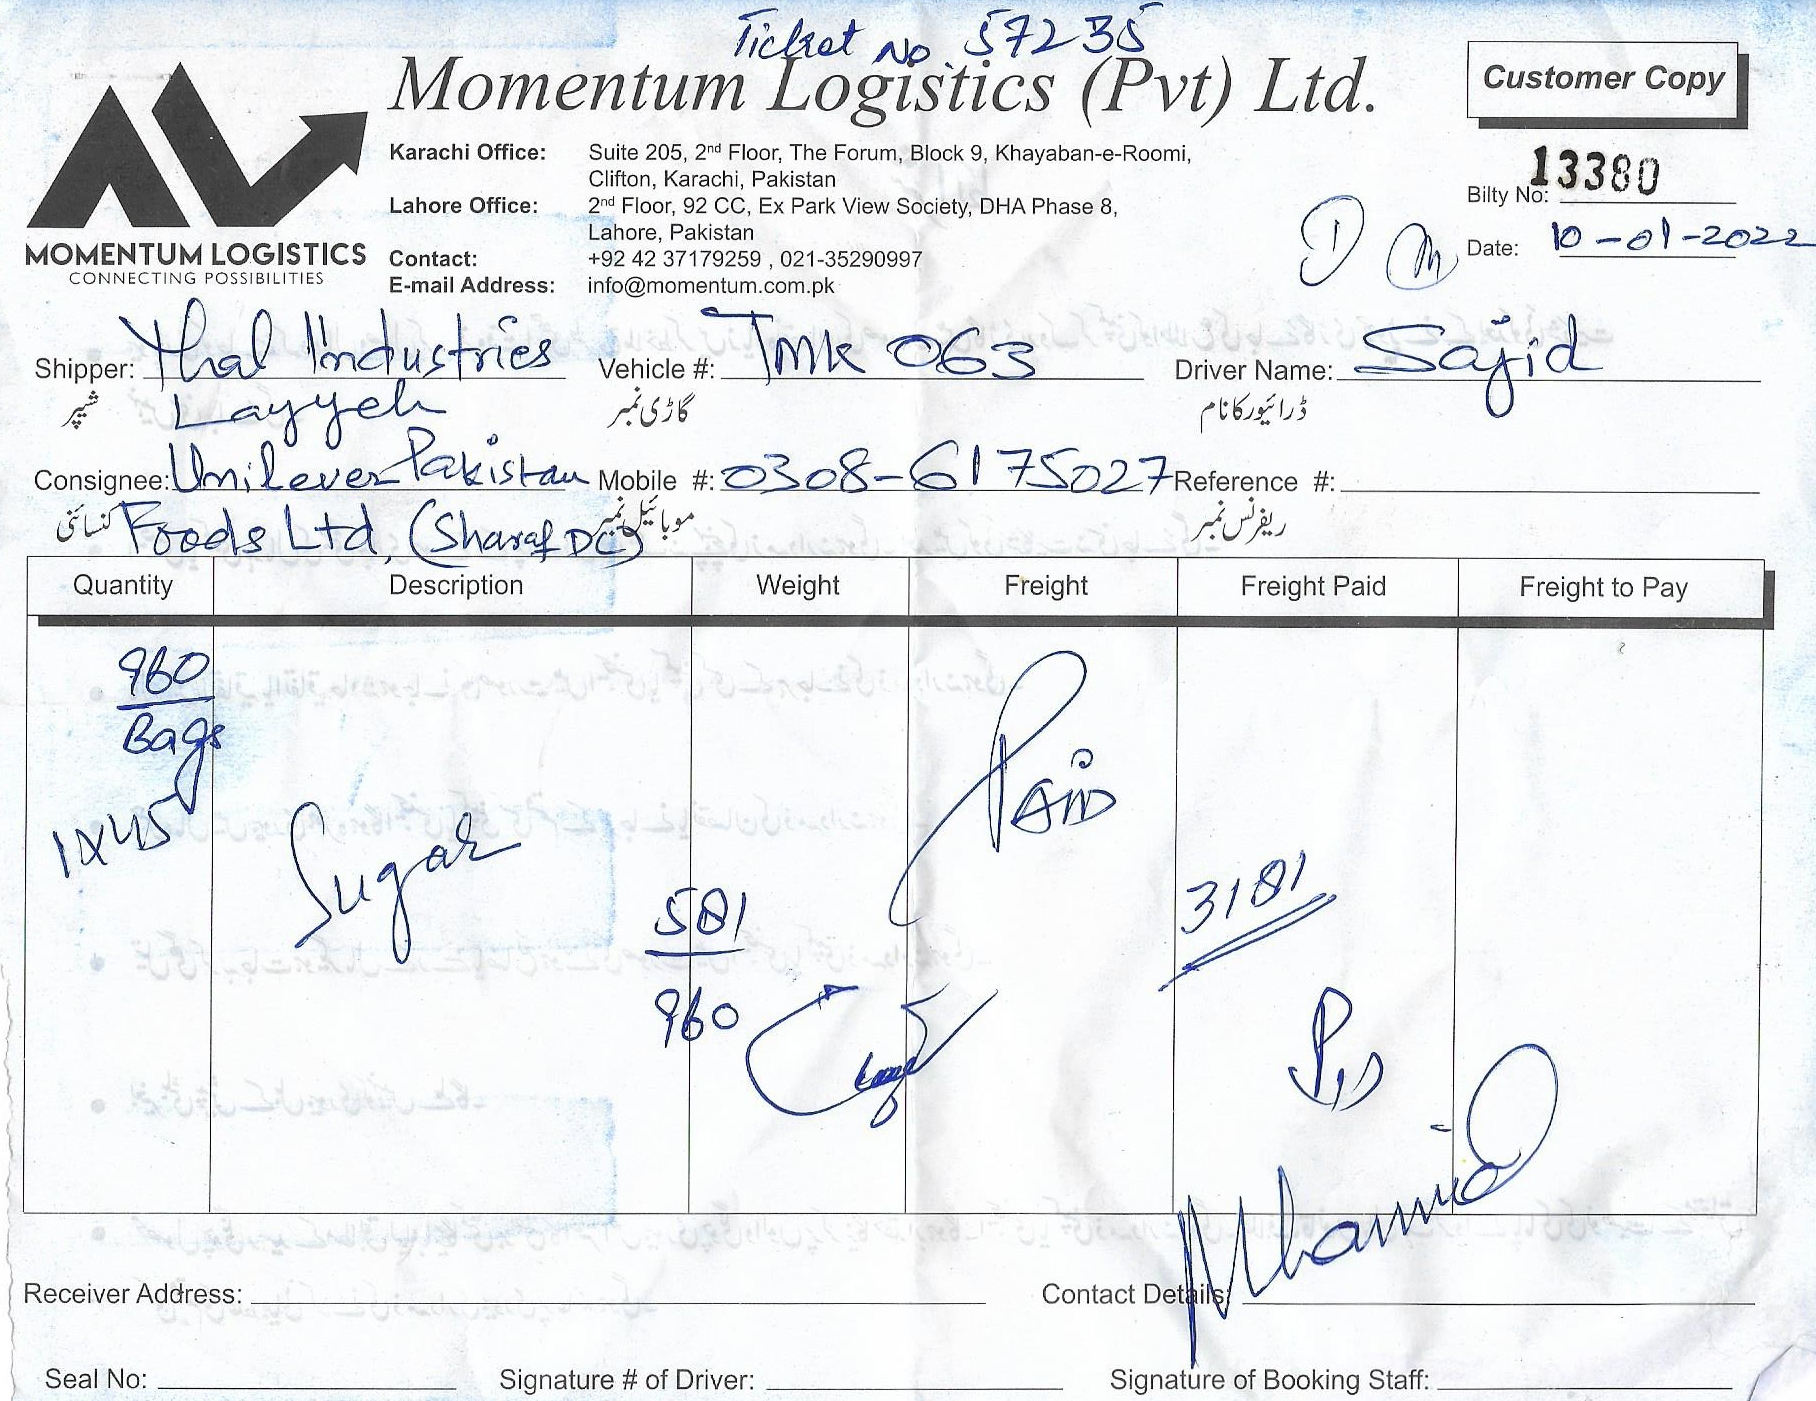 Ticket No. 57235
Momentum Logistics (Pvt) Ltd.
Customer Copy
MOMENTUM LOGISTICS
CONNECTING POSSIBILITIES
Karachi Office: Suite 205, 2nd Floor, The Forum, Block 9, Khayaban-e-Roomi,
Clifton, Karachi, Pakistan
Lahore Office: 2nd Floor, 92 CC, Ex Park View Society, DHA Phase 8,
Lahore, Pakistan
Contact: +92 42 37179259 , 021-35290997
E-mail Address: info@momentum.com.pk
Bilty No: 13380
Date: 10-01-2022
Shipper: Thal Industries Vehicle #: TMK 063 Driver Name: Sajid
شیپر Layyeh گاڑی نمبر ڈرائیور کا نام
Consignee: Unilever Pakistan Mobile #: 0308-6175027 Reference #:
کنسائنی Foods Ltd, (Sharaf DC) موبائیل نمبر ریفرنس نمبر
Quantity Description Weight Freight Freight Paid Freight to Pay
960
Bags
1x45
Sugar
PAID
581
960
3181
Receiver Address: Contact Details:
Seal No: Signature # of Driver: Signature of Booking Staff: